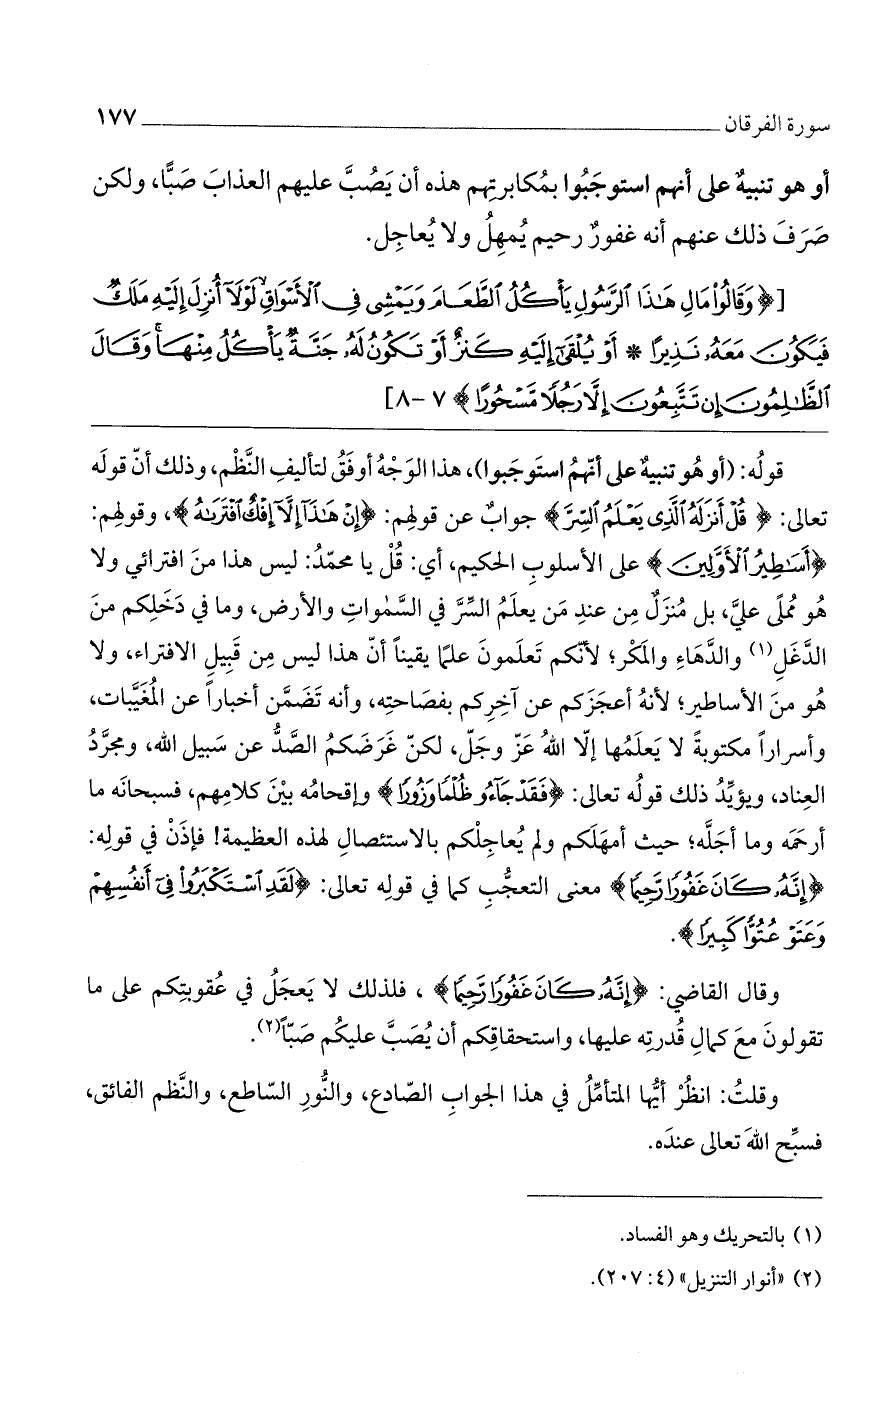 سورة الفرقان ١٧٧
أو هو تنبيهٌ على أنهم استوجَبُوا بمُكابرتِهم هذه أن يَصُبَّ عليهم العذابَ صَبًّا، ولكن
صَرَفَ ذلك عنهم أنه غفورٌ رحيم يُمهِلُ ولا يُعاجِل.
[﴿وَقَالُوا۟ مَالِ هَٰذَا ٱلرَّسُولِ يَأْكُلُ ٱلطَّعَامَ وَيَمْشِى فِى ٱلْأَسْوَاقِ ۙ لَوْلَآ أُنزِلَ إِلَيْهِ مَلَكٌ
فَيَكُونَ مَعَهُۥ نَذِيرًا * أَوْ يُلْقَىٰٓ إِلَيْهِ كَنزٌ أَوْ تَكُونُ لَهُۥ جَنَّةٌ يَأْكُلُ مِنْهَا ۚ وَقَالَ
ٱلظَّٰلِمُونَ إِن تَتَّبِعُونَ إِلَّا رَجُلًا مَّسْحُورًا﴾ ٧ –٨]
قولُه: (أو هُو تنبيهٌ على أنّهمُ استَوجَبوا)، هذا الوَجْهُ أوفَقُ لتأليفِ النَّظْم، وذلك أنّ قولَه
تعالى: ﴿قُلْ أَنزَلَهُ ٱلَّذِى يَعْلَمُ ٱلسِّرَّ﴾ جوابٌ عن قولهِم: ﴿إِنْ هَٰذَآ إِلَّآ إِفْكٌ ٱفْتَرَىٰهُ﴾، وقولهِم:
﴿أَسَٰطِيرُ ٱلْأَوَّلِينَ﴾ على الأسلوبِ الحكيم، أي: قُلْ يا محمّدُ: ليس هذا منَ افترائي ولا
هُو مُملًى عليَّ، بل مُنزَلٌ مِن عندِ مَن يعلَمُ السِّرَّ في السَّمٰواتِ والأرض، وما في دَخَلِكم منَ
الدَّغَلِ(١) والدَّهَاءِ والمَكْر؛ لأنّكم تَعلَمونَ علمًا يقيناً أنّ هذا ليس مِن قَبِيلِ الافتراء، ولا
هُو منَ الأساطير؛ لأنهُ أعجَزَكم عن آخِرِكم بفصَاحتِه، وأنه تَضَمَّن أخباراً عن المُغَيَّبات،
وأسراراً مكتوبةً لا يَعلَمُها إلّا اللهُ عَزّ وجَلّ، لكنّ غَرَضَكمُ الصَّدُّ عن سَبيل الله، ومجرَّدُ
العِناد، ويؤيِّدُ ذلك قولُه تعالى: ﴿فَقَدْ جَآءُو ظُلْمًا وَزُورًا﴾ وإقحامُه بيْنَ كلامِهم، فسبحانَه ما
أرحَمَه وما أجَلَّه؛ حيث أمهَلَكم ولم يُعاجِلْكم بالاستئصالِ لهذه العظيمة! فإذَنْ في قولِه:
﴿إِنَّهُۥ كَانَ غَفُورًا رَّحِيمًا﴾ معنى التعجُّبِ كما في قولِه تعالى: ﴿لَقَدِ ٱسْتَكْبَرُوا۟ فِىٓ أَنفُسِهِمْ
وَعَتَوْ عُتُوًّا كَبِيرًا﴾.
وقال القاضي: ﴿إِنَّهُۥ كَانَ غَفُورًا رَّحِيمًا﴾ ، فلذلك لا يَعجَلُ في عُقوبتِكم على ما
تقولونَ معَ كمالِ قُدرتِه عليها، واستحقاقِكم أن يُصَبَّ عليكُم صَبّاً(٢).
وقلتُ: انظُرْ أيُّها المتأمِّلُ في هذا الجوابِ الصّادع، والنُّورِ السّاطع، والنَّظم الفائق،
فسبِّح اللهَ تعالى عندَه.
(١) بالتحريك وهو الفساد.
(٢) «أنوار التنزيل» (٤: ٢٠٧).